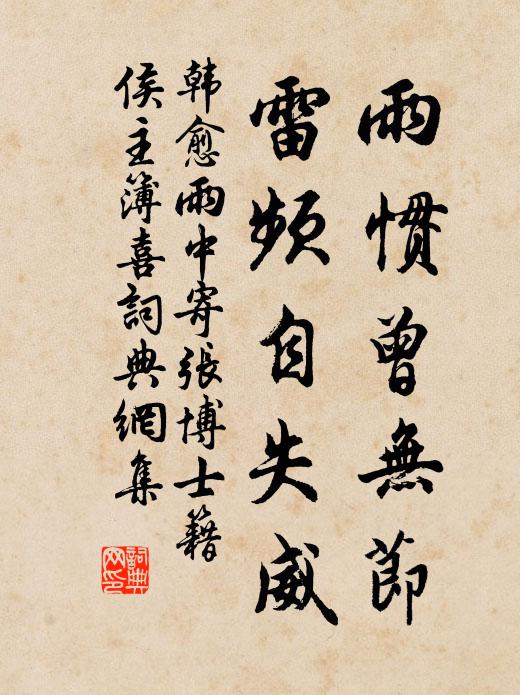 雨慣曾無節
雷頻自失威
韩愈雨中寄張博士籍
侯主簿喜詞典網集
詞典網印